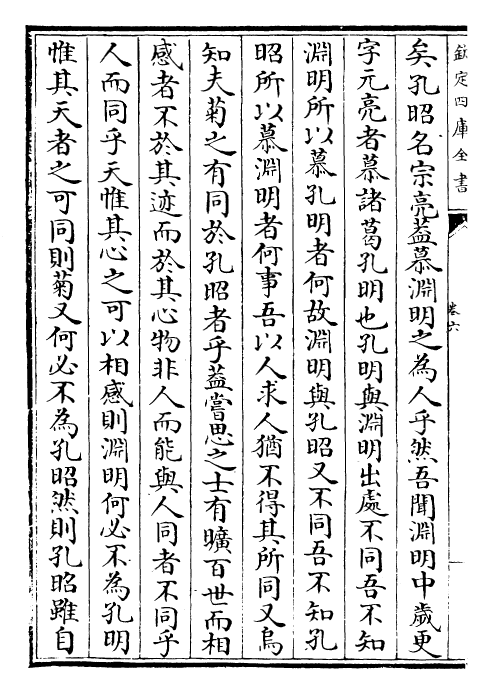 欽定四庫全書
卷六
矣孔昭名宗亮葢慕淵明之為人乎然吾聞淵明中歲更
字元亮者慕諸葛孔明也孔明與淵明出處不同吾不知
淵明所以慕孔明者何故淵明與孔昭又不同吾不知孔
昭所以慕淵明者何事吾以人求人猶不得其所同又烏
知夫菊之有同於孔昭者乎葢嘗思之士有曠百世而相
感者不於其迹而於其心物非人而能與人同者不同乎
人而同乎天惟其心之可以相感則淵明何必不為孔明
惟其天者之可同則菊又何必不為孔昭然則孔昭雖自